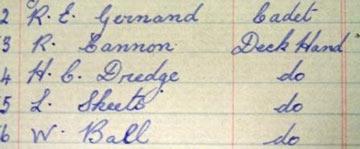 2 R. E. Gernand Cadet
3 R. Cannon Deck Hand
4 H. C. Dredge do
5 L. Skeets do
6 W. Ball do